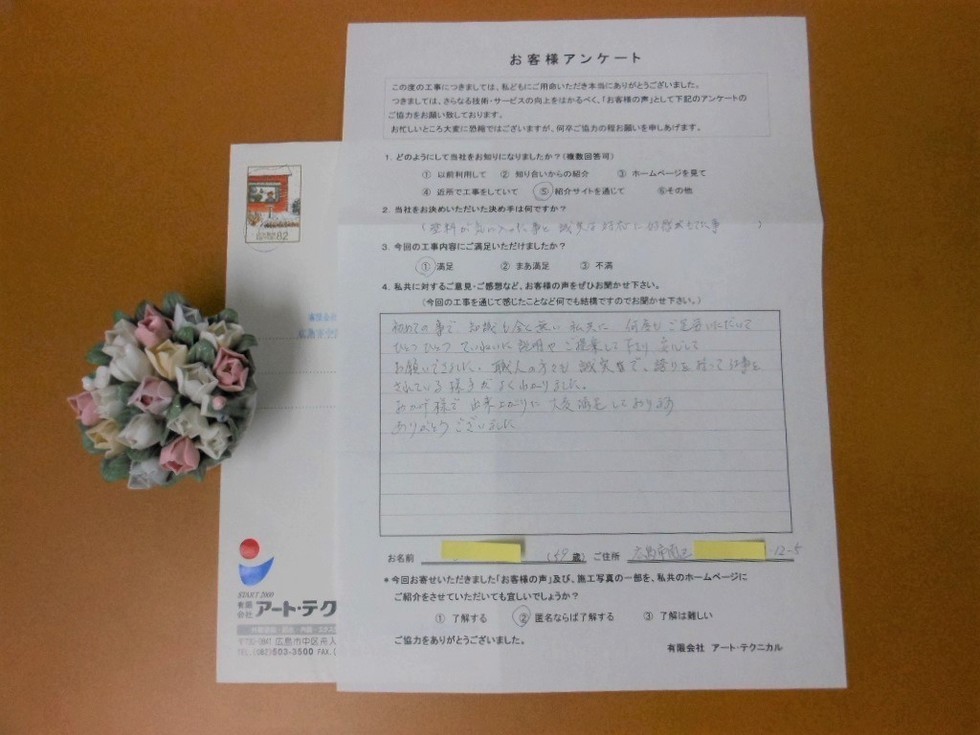 お客様アンケート
この度の工事につきましては、私どもにご用命いただき本当にありがとうございました。
つきましては、さらなる技術・サービスの向上をはかるべく、「お客様の声」として下記のアンケートの
ご協力をお願い致しております。
お忙しいところ大変に恐縮ではございますが、何卒ご協力の程お願いを申しあげます。
1. どのようにして当社をお知りになりましたか？(複数回答可)
① 以前利用して ② 知り合いからの紹介 ③ ホームページを見て
④ 近所で工事をしていて ⑤ 紹介サイトを通じて ⑥その他
2. 当社をお決めいただいた決め手は何ですか？
が気に入った事と 誠実な対応に
3. 今回の工事内容にご満足いただけましたか？
① 満足 ② まあ満足 ③ 不満
4. 私共に対するご意見・ご感想など、お客様の声をぜひお聞かせ下さい。
(今回の工事を通じて感じたことなど何でも結構ですのでお聞かせ下さい。)
初めての事で 知識も全く無い私共に 何度も いただいて
ひとつひとつ ていねいに 説明や ご提案して下さり 安心して
お願いできました。職人の方々も 誠実で、誇りを持って仕事を
されている様子がよくわかりました。
おかげ様で 出来上がりに 大変満足しております
ありがとうございました
お名前 (59 歳) ご住所 広島市 -12-5
*今回お寄せいただきました「お客様の声」及び、施工写真の一部を、私共のホームページに
ご紹介をさせていただいても宜しいでしょうか？
① 了解する ② 匿名ならば了解する ③ 了解は難しい
ご協力をありがとうございました。
有限会社 アート・テクニカル
82
START 2000
有限会社 アート・テクニ
広島市中区舟入
TEL.(082)503-3500 FAX.(